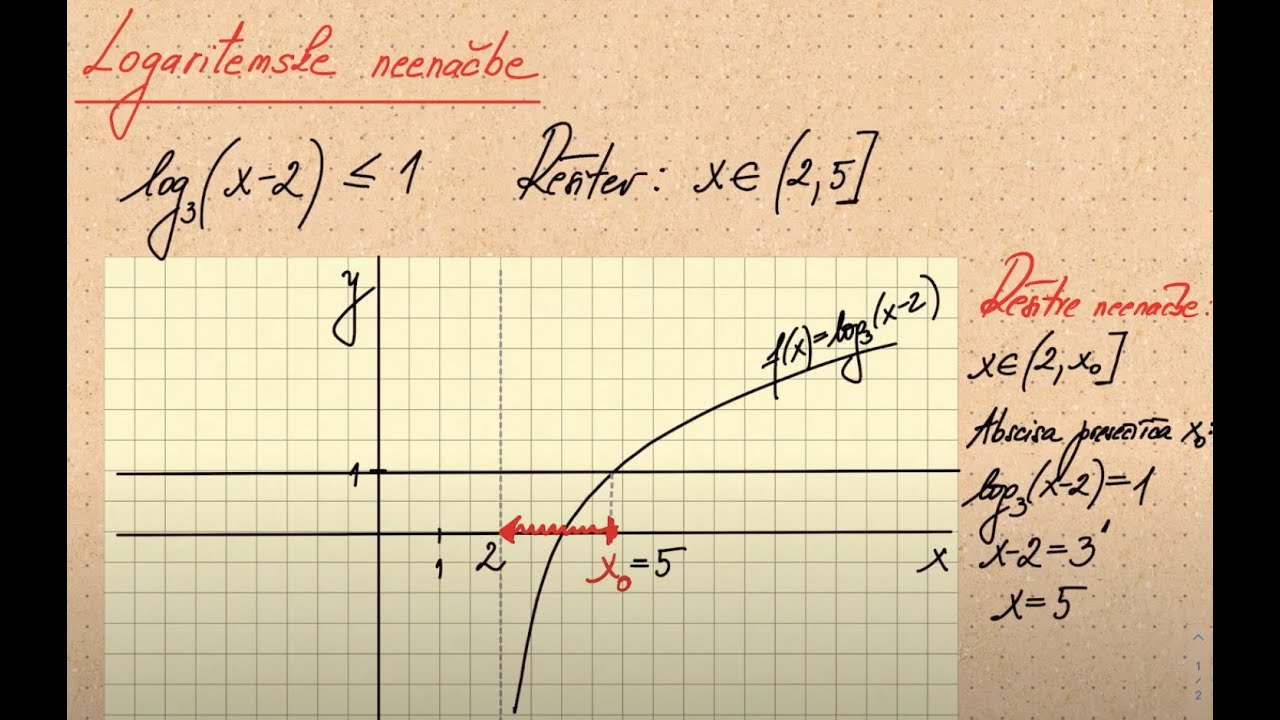 Logaritemske neenačbe
log₃(x-2) ≤ 1   Rešitev: x∈(2,5]
y
f(x)=log₃(x-2)
1
1
2
x₀=5
x
Rešitve neenačbe:
x∈(2,x₀]
Abscisa presečišča x₀:
log₃(x-2)=1
x-2=3¹
x=5
1
/
2